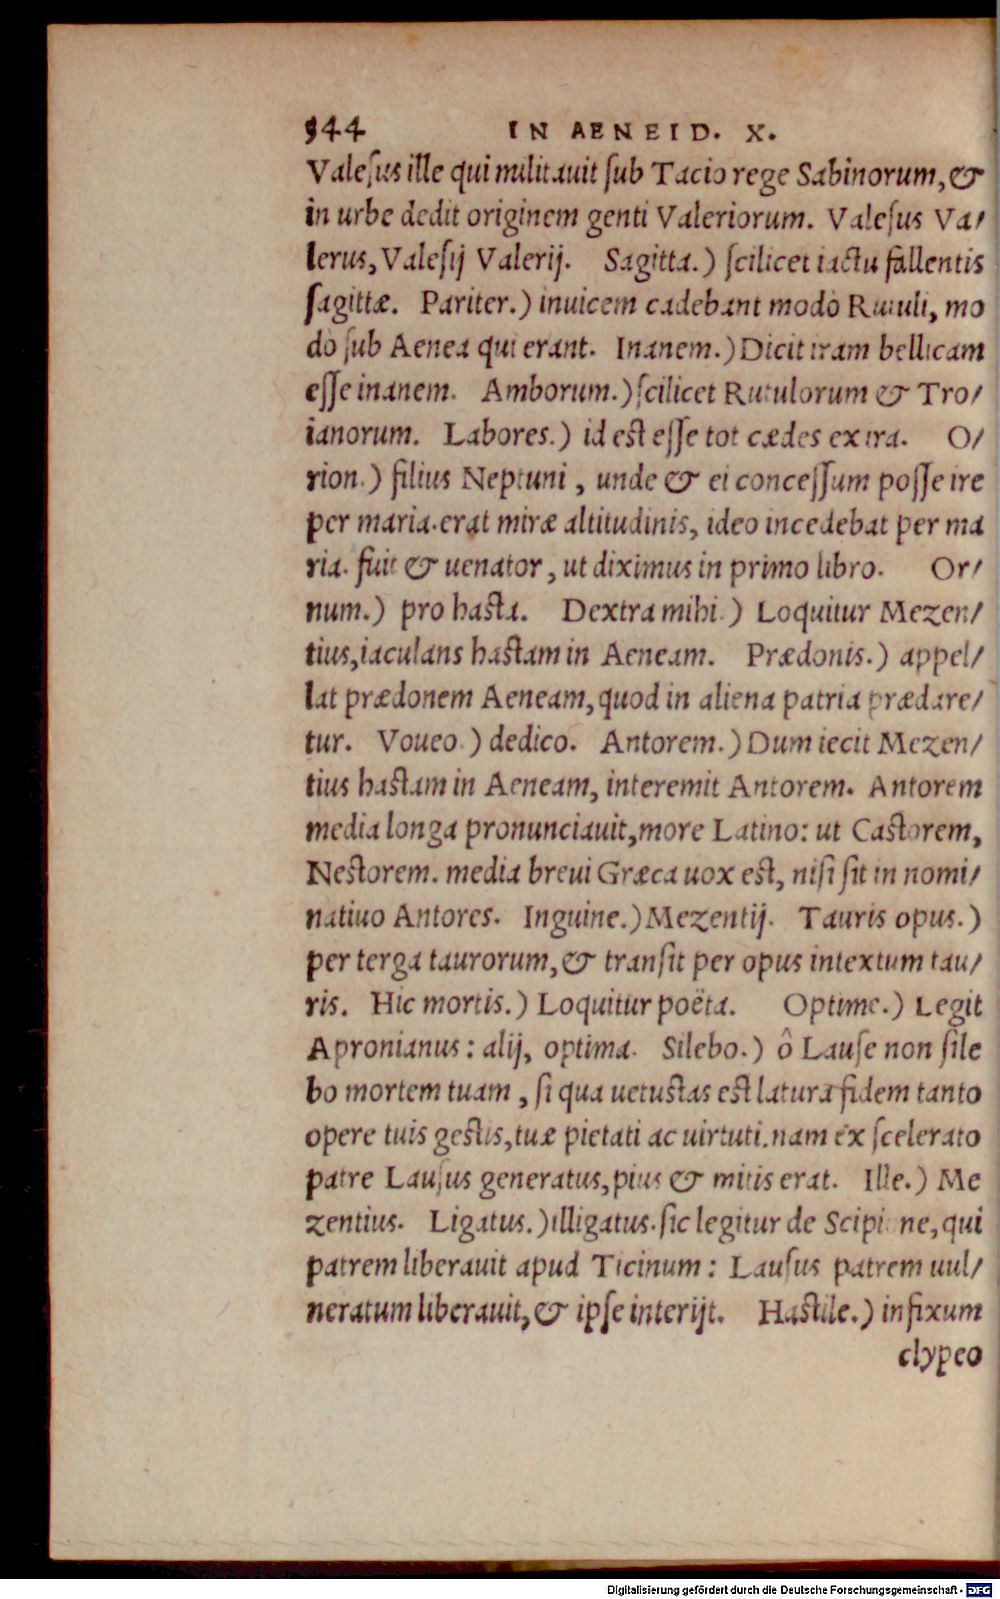 544 IN AENEID. X.
Valeſus ille qui militauit ſub Tacio rege Sabinorum, &
in urbe dedit originem genti Valeriorum. Valeſus Va/
lerus, Valeſij Valerij. Sagitta.) ſcilicet iactu fallentis
ſagittæ. Pariter.) inuicem cadebant modò Rutuli, mo
dò ſub Aenea qui erant. Inanem.) Dicit iram bellicam
eſſe inanem. Amborum.) ſcilicet Rutulorum & Tro/
ianorum. Labores.) id est eſſe tot cædes extra. O/
rion.) filius Neptuni, unde & ei conceſſum poſſe ire
per maria. erat miræ altitudinis, ideo incedebat per ma
ria. fuit & uenator, ut diximus in primo libro. Or/
num.) pro hasta. Dextra mihi.) Loquitur Mezen/
tius, iaculans hastam in Aeneam. Prædonis.) appel/
lat prædonem Aeneam, quod in aliena patria prædare/
tur. Voueo.) dedico. Antorem.) Dum iecit Mezen/
tius hastam in Aeneam, interemit Antorem. Antorem
media longa pronunciauit, more Latino: ut Castorem,
Nestorem. media breui Græca uox est, niſi ſit in nomi/
natiuo Antores. Inguine.) Mezentij. Tauris opus.)
per terga taurorum, & tranſit per opus intextum tau/
ris. Hic mortis.) Loquitur poëta. Optime.) Legit
Apronianus: alij, optima. Silebo.) ô Lauſe non ſile
bo mortem tuam, ſi qua uetustas est latura fidem tanto
opere tuis gestis, tuæ pietati ac uirtuti. nam ex ſcelerato
patre Lauſus generatus, pius & mitis erat. Ille.) Me
zentius. Ligatus.) illigatus. ſic legitur de Scipione, qui
patrem liberauit apud Ticinum: Lauſus patrem uul/
neratum liberauit, & ipſe interijt. Hastile.) infixum
clypeo
Digitalisierung gefördert durch die Deutsche Forschungsgemeinschaft - DFG